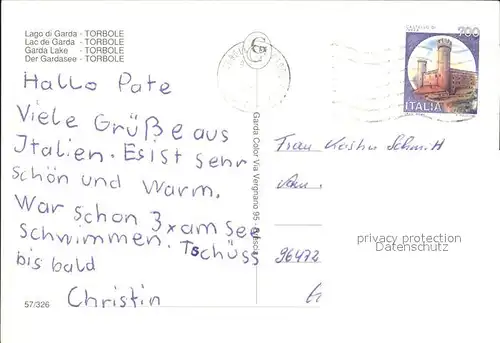 Lago di Garda - TORBOLE
Lac de Garda - TORBOLE
Garda Lake - TORBOLE
Der Gardasee - TORBOLE
Hallo Pate
Viele Grüße aus
Italien. Es ist sehr
schön und Warm.
War schon 3x am See
schwimmen. Tschüss
bis bald
Christin
57/326
Garda Color Via Vergnano 95 -
700
ITALIA
Frau
96472
privacy protection
Datenschutz